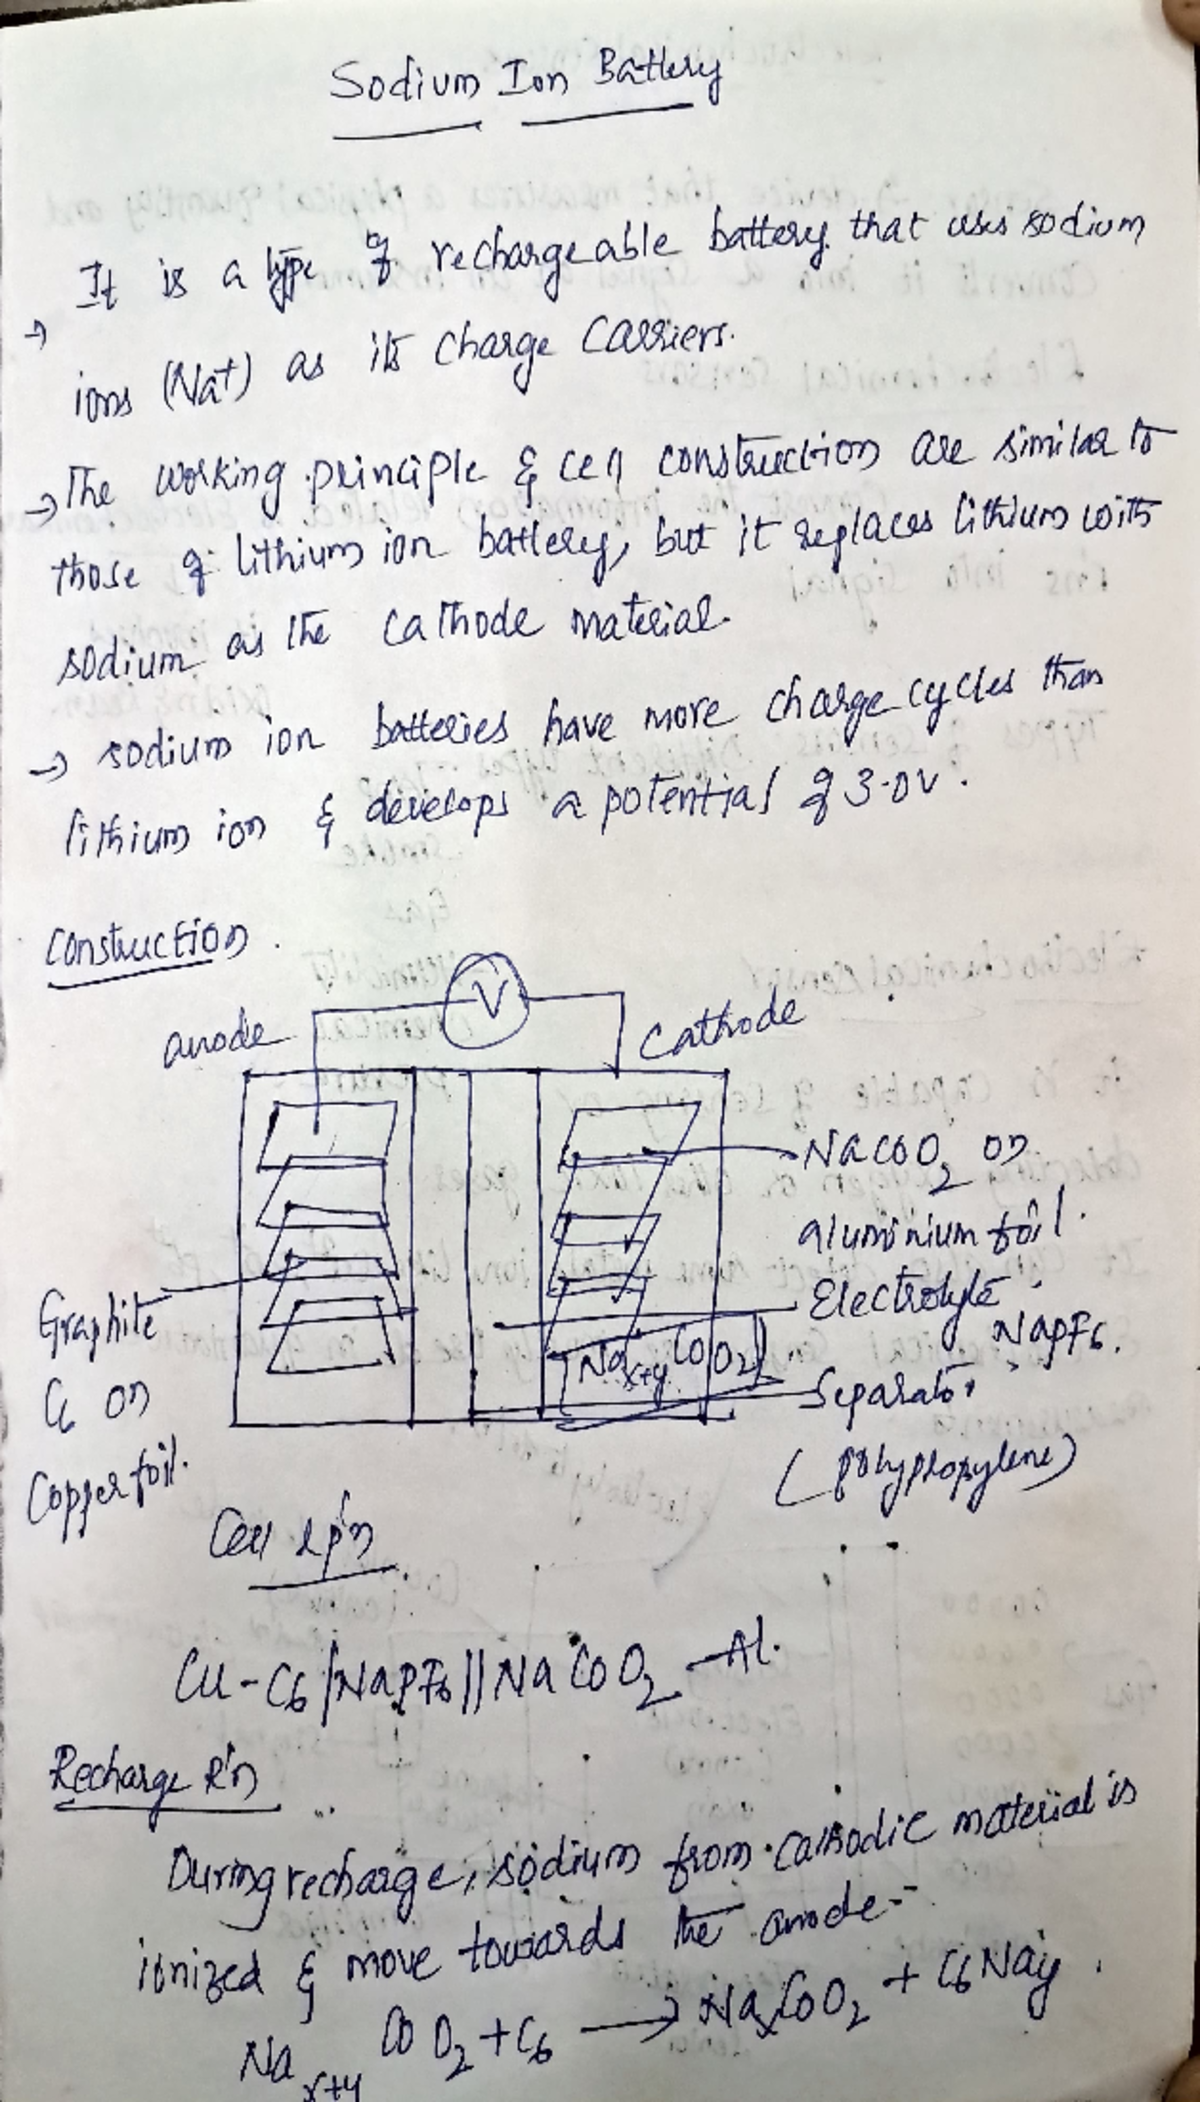 Sodium Ion Battery
→ It is a type of rechargeable battery that uses sodium
ions (Na+) as its charge carriers.
→ The working principle & cell construction are similar to
those of lithium ion battery, but it replaces lithium with
sodium as the cathode material.
→ sodium ion batteries have more charge cycles than
lithium ion & develops a potential of 3.0V.
Construction.
V
anode
Cathode
NaCoO2 on
aluminium foil.
Electrolyte
NaPF6.
Graphite
C6 on
Copper foil.
Nax+y CoO2
Separator
(polypropylene)
Cell rp'n
Cu-C6/NaPF6||NaCoO2-Al.
Recharge R'n
During recharge, sodium from cathodic material is
ionized & move towards the anode-
Nax+y CoO2 + C6 → NaxCoO2 + C6Nay.